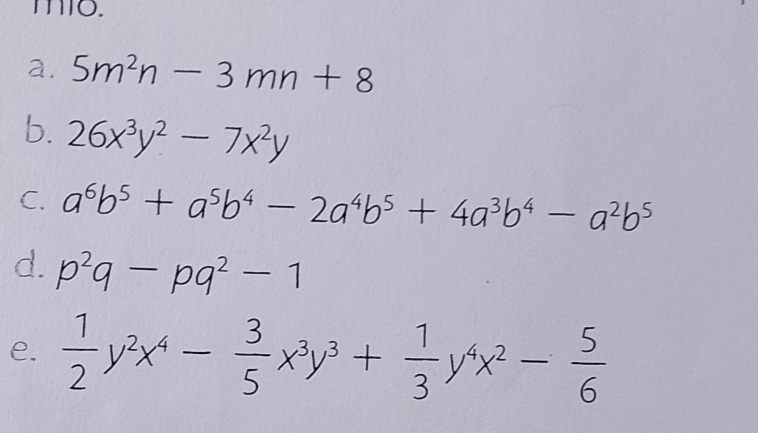 mio.
a. 5m²n − 3 mn + 8
b. 26x³y² − 7x²y
c. a⁶b⁵ + a⁵b⁴ − 2a⁴b⁵ + 4a³b⁴ − a²b⁵
d. p²q − pq² − 1
e. 1/2 y²x⁴ − 3/5 x³y³ + 1/3 y⁴x² − 5/6